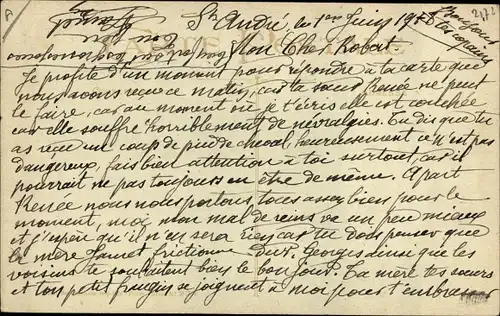 St André, le 1er Juin 1918
Bonjour
Mon Cher Robert
Je profite d'un moment pour répondre à ta carte que
nous avons reçue ce matin, car ta sœur Renée ne peut
le faire, car au moment où je t'écris elle est couchée
car elle souffre horriblement de névralgies. Tu dis que tu
as reçu un coup de pied de cheval, heureusement ce n'est pas
dangereux, fais bien attention à toi surtout, car il
pourrait ne pas toujours en être de même. A part
Renée nous nous portons tous assez bien pour le
moment, moi mon mal de reins va un peu mieux
et j'espère qu'il n'en sera rien, car tu dois penser que
la mère frictionne dur. Georges ainsi que les
voisins te souhaitent bien le bonjour. Ta mère tes sœurs
et ton petit frangin se joignent à moi pour t'embrasser